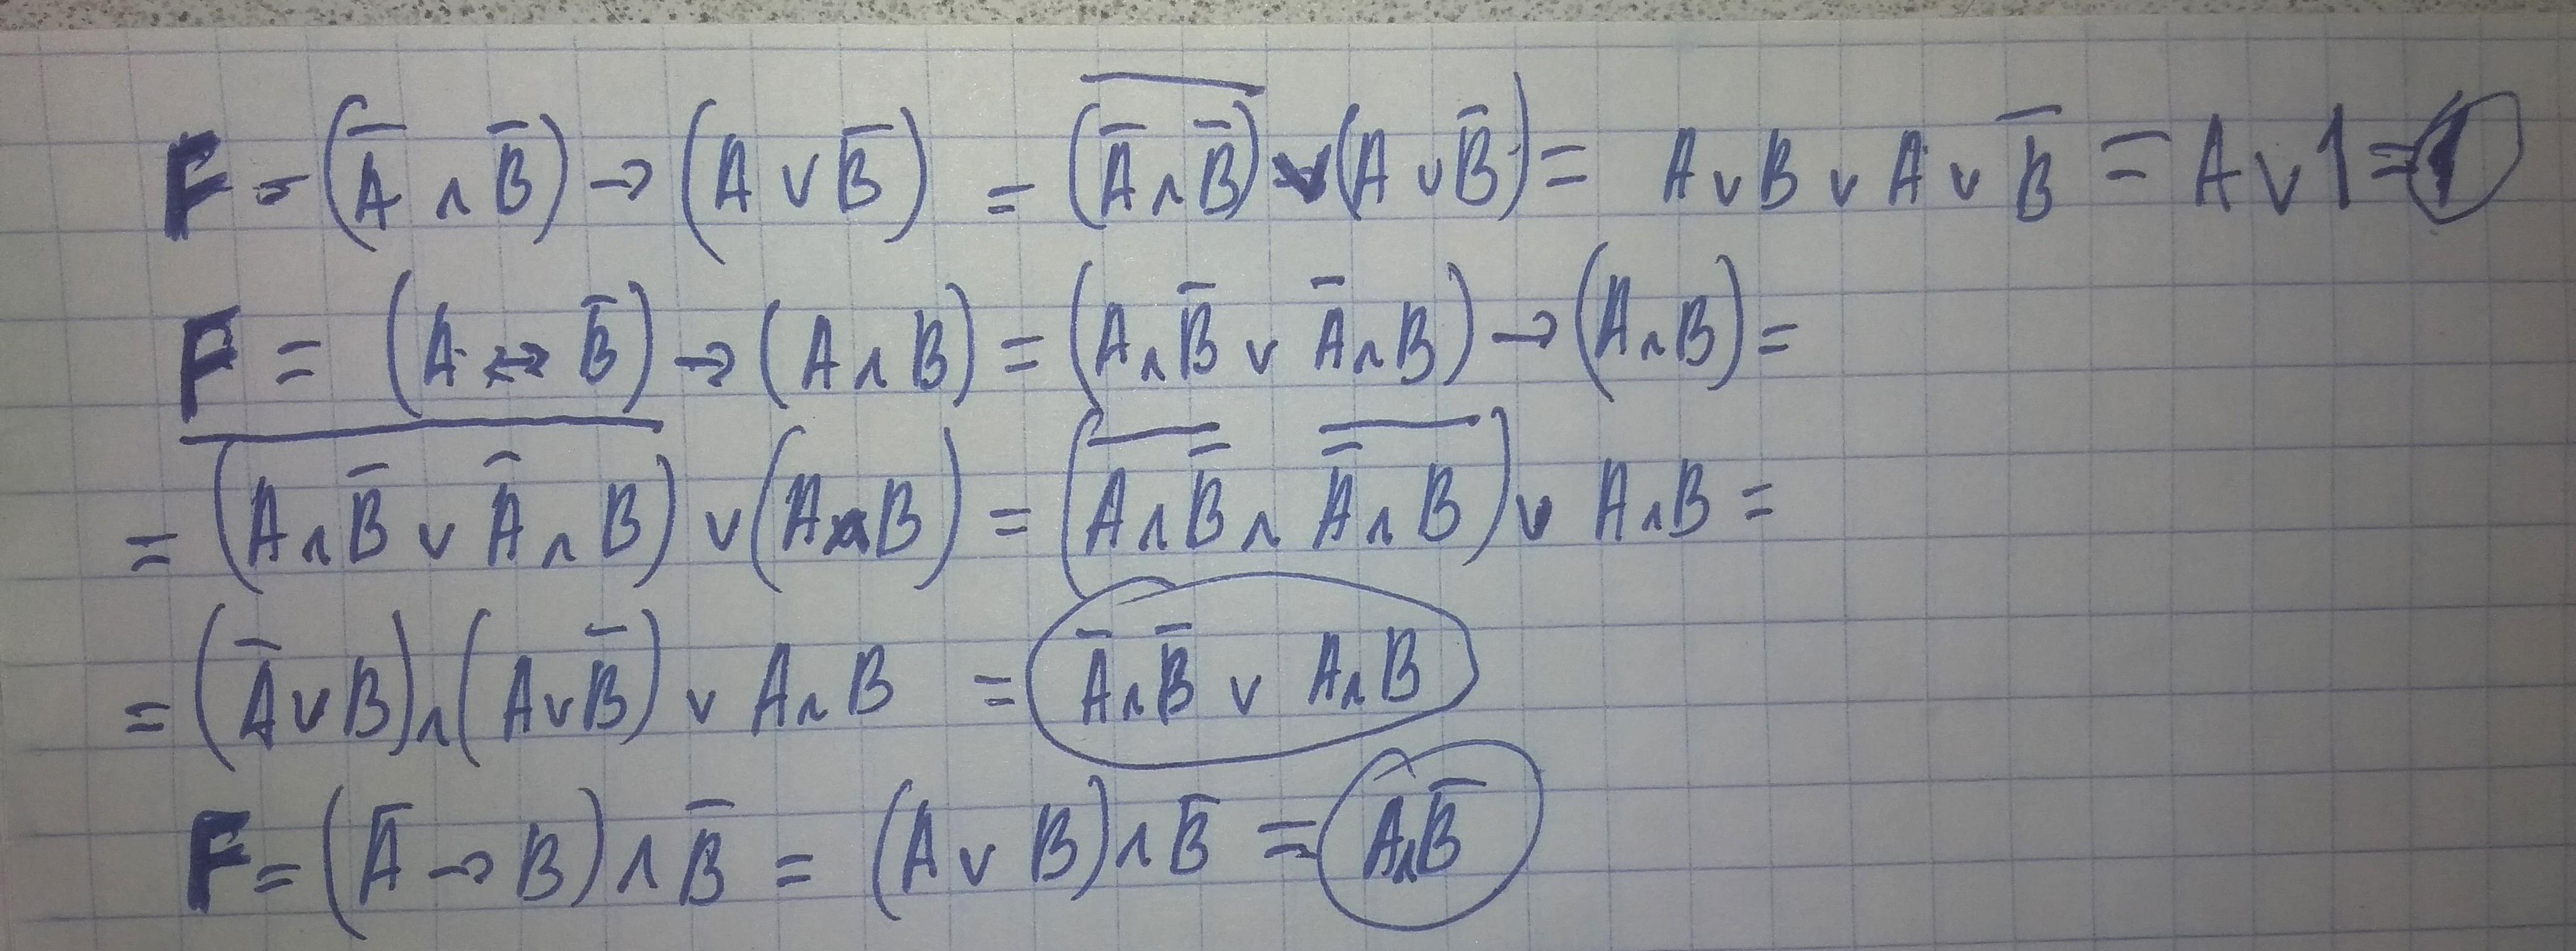 F = (A̅ ∧ B̅) → (A ∨ B̅) = \overline{(A̅ ∧ B̅)} ∨ (A ∨ B̅) = A ∨ B ∨ A ∨ B̅ = A ∨ 1 = 1
F = (A ↔ B̅) → (A ∧ B) = (A ∧ B̅ ∨ A̅ ∧ B) → (A ∧ B) =
= \overline{(A ∧ B̅ ∨ A̅ ∧ B)} ∨ (A ∧ B) = (\overline{A ∧ B̅} ∧ \overline{A̅ ∧ B}) ∨ A ∧ B =
= (A̅ ∨ B) ∧ (A ∨ B̅) ∨ A ∧ B = A̅ ∧ B̅ ∨ A ∧ B
F = (A̅ → B) ∧ B̅ = (A ∨ B) ∧ B̅ = A ∧ B̅